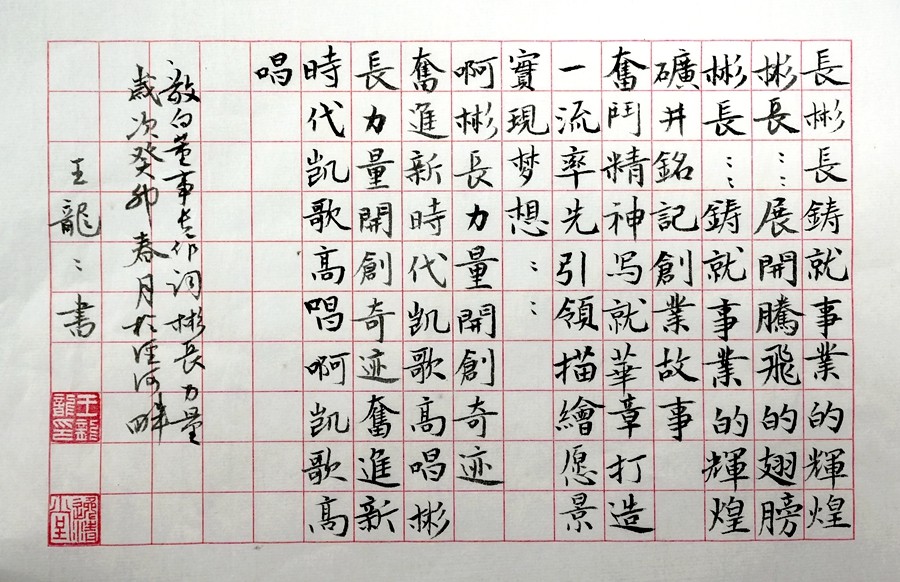 長彬長鑄就事業的輝煌
彬長：：展開騰飛的翅膀
彬長：：鑄就事業的輝煌
礦井銘記創業故事
奮鬥精神写就華章打造
一流率先引領描繪愿景
實現梦想：：
啊彬長力量開創奇迹
奮進新時代凱歌高唱彬
長力量開創奇迹奮進新
時代凱歌高唱啊凱歌高
唱
董事长作词彬長力量
歲次癸卯春月於涇河畔
王龍：书
王龍龍印